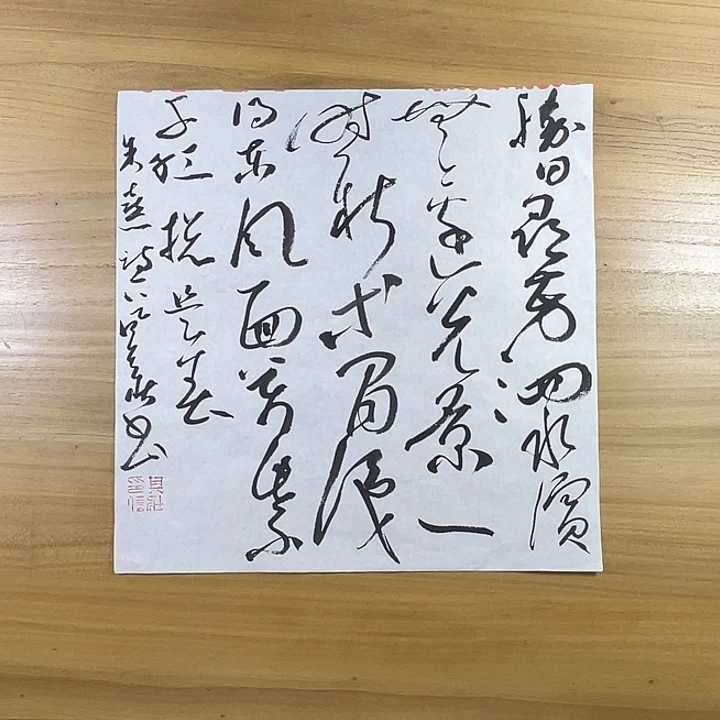 勝日尋芳泗水濱
無邊光景一
時新等閒識
得東風面萬紫
千紅總是春
朱熹詩 書